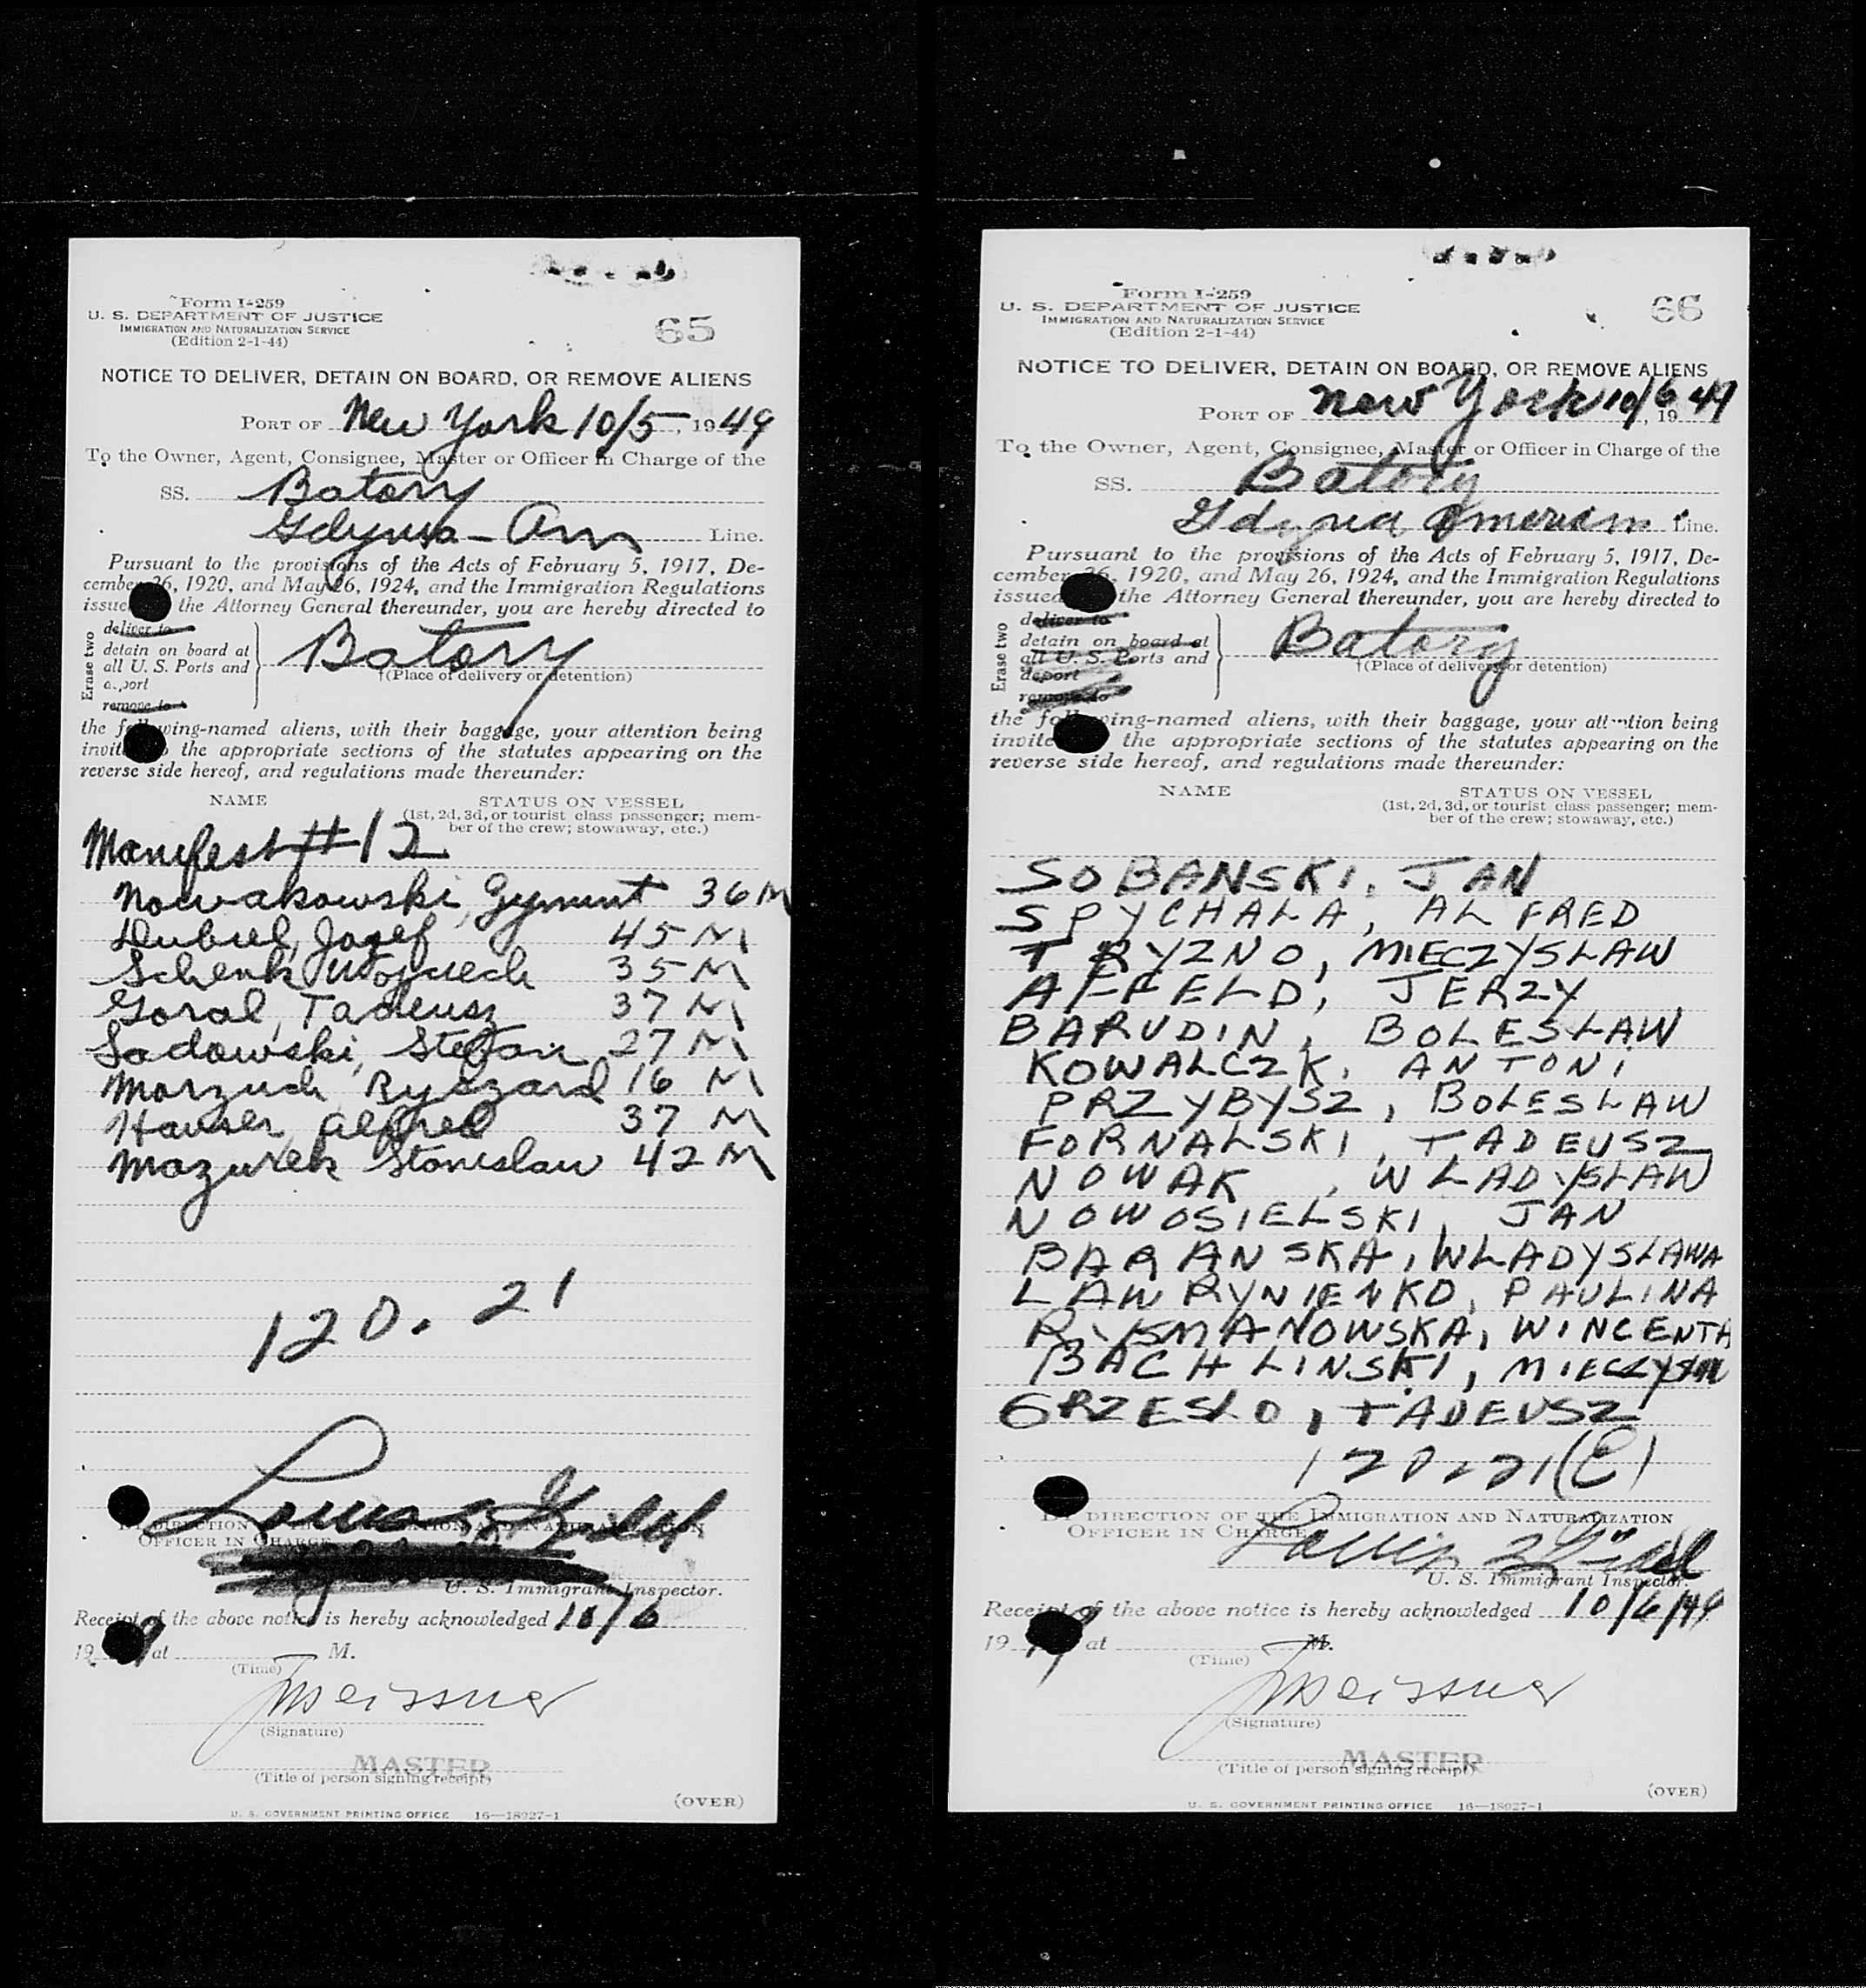 Form I-259
U. S. DEPARTMENT OF JUSTICE
IMMIGRATION AND NATURALIZATION SERVICE
(Edition 2-1-44)
65
NOTICE TO DELIVER, DETAIN ON BOARD, OR REMOVE ALIENS
PORT OF New York 10/5, 1949
To the Owner, Agent, Consignee, Master or Officer in Charge of the
SS. Batory
Gdynia - Am Line.
Pursuant to the provisions of the Acts of February 5, 1917, De-
cember 26, 1920, and May 26, 1924, and the Immigration Regulations
issued the Attorney General thereunder, you are hereby directed to
Erase two
deliver to
detain on board at
all U. S. Ports and
deport
remove to
Batory
†(Place of delivery or detention)
the following-named aliens, with their baggage, your attention being
invited the appropriate sections of the statutes appearing on the
reverse side hereof, and regulations made thereunder:
NAME STATUS ON VESSEL
(1st, 2d, 3d, or tourist class passenger; mem-
ber of the crew; stowaway, etc.)
Manifest #12
Nowakowski, Zygmunt 36 M
Dubiel, Jozef 45 M
Schenk, Wojciech 35 M
Goral, Tadeusz 37 M
Sadowski, Stefan 27 M
Ryszard 16 M
Hauser, Alfred 37 M
Mazurek Stanislaw 42 M
120.21
BY DIRECTION OF THE IMMIGRATION AND NATURALIZATION
OFFICER IN CHARGE
U. S. Immigrant Inspector.
Receipt of the above notice is hereby acknowledged 10/6
19 at M.
(Time)
Meissner
(Signature)
MASTER
(Title of person signing receipt)
(OVER)
U. S. GOVERNMENT PRINTING OFFICE 16—18027-1
Form I-259
U. S. DEPARTMENT OF JUSTICE
IMMIGRATION AND NATURALIZATION SERVICE
(Edition 2-1-44)
66
NOTICE TO DELIVER, DETAIN ON BOARD, OR REMOVE ALIENS
PORT OF New York 10/6, 1949
To the Owner, Agent, Consignee, Master or Officer in Charge of the
SS. Batory
Gdynia American Line.
Pursuant to the provisions of the Acts of February 5, 1917, De-
cember 26, 1920, and May 26, 1924, and the Immigration Regulations
issued the Attorney General thereunder, you are hereby directed to
Erase two
deliver to
detain on board at
all U. S. Ports and
deport
remove to
Batory
†(Place of delivery or detention)
the following-named aliens, with their baggage, your attention being
invited the appropriate sections of the statutes appearing on the
reverse side hereof, and regulations made thereunder:
NAME STATUS ON VESSEL
(1st, 2d, 3d, or tourist class passenger; mem-
ber of the crew; stowaway, etc.)
SOBANSKI, JAN
SPYCHALA, ALFRED
TRYZNO, MIECZYSLAW
AFFELD, JERZY
BARUDIN, BOLESLAW
KOWALCZK, ANTONI
PRZYBYSZ, BOLESLAW
FORNALSKI, TADEUSZ
NOWAK, WLADYSLAW
NOWOSIELSKI, JAN
BARANSKA, WLADYSLAWA
LAWRYNIENKO, PAULINA
RYSMANOWSKA, WINCENTA
BACHLINSKI,
GRZESLO, TADEUSZ
120.21(E)
BY DIRECTION OF THE IMMIGRATION AND NATURALIZATION
OFFICER IN CHARGE
U. S. Immigrant Inspector.
Receipt of the above notice is hereby acknowledged 10/6/49
19 at M.
(Time)
Meissner
(Signature)
MASTER
(Title of person signing receipt)
(OVER)
U. S. GOVERNMENT PRINTING OFFICE 16—18027-1